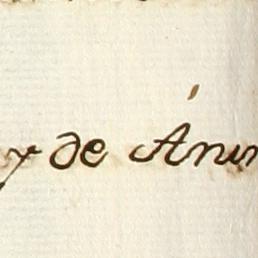 y de Ánim